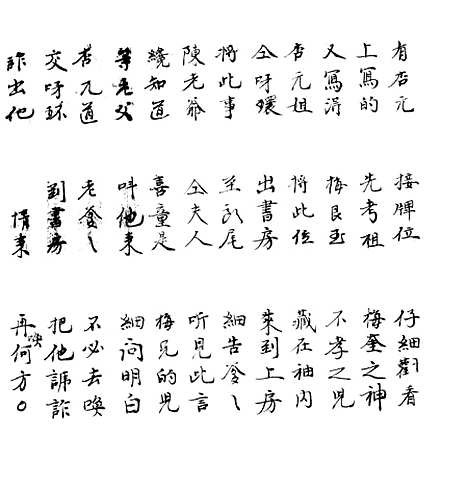 有杏元 接牌位 仔細觀看
上寫的 先考祖 梅奎之神
又寫淂 梅良玉 不孝之児
杏元姐 将此位 藏在袖内
仝呀環 出書房 來到上房
将此事 尾 細告爹〻
陳老爺 仝夫人 听見此言
纔知道 喜童是 梅兄的児
等老父 呌他来 細问明白
杏元道 老爹〻 不必去喚
交呀环 到書房 把他諕詐
詐出他 情来 再喚何方○